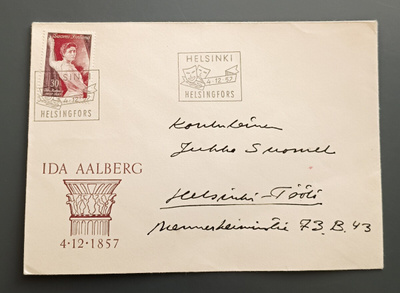 Suomi Finland
30
HELSINKI
4-12-57
HELSINGFORS
HELSINKI
4-12-57
HELSINGFORS
IDA AALBERG
4·12·1857
Jukka
Helsinki-Töölö
Mannerheimintie 73.B.43